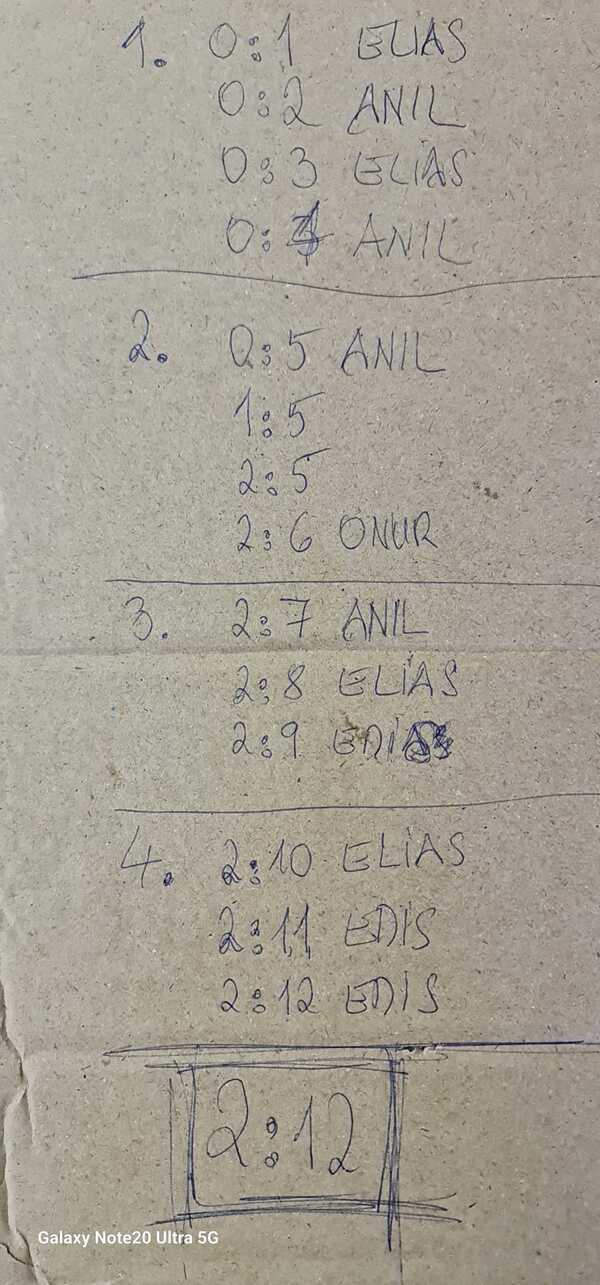 1. 0:1 ELIAS
0:2 ANIL
0:3 ELIAS
0:4 ANIL
2. 0:5 ANIL
1:5
2:5
2:6 ONUR
3. 2:7 ANIL
2:8 ELİAS
2:9
4. 2:10 ELİAS
2:11 EDİS
2:12 EDİS
2:12
Galaxy Note20 Ultra 5G